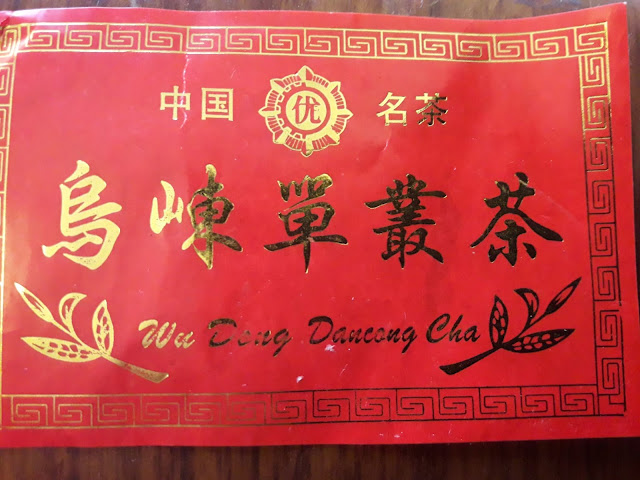 中国 优 名茶
烏崬單叢茶
Wu Dong Dancong Cha